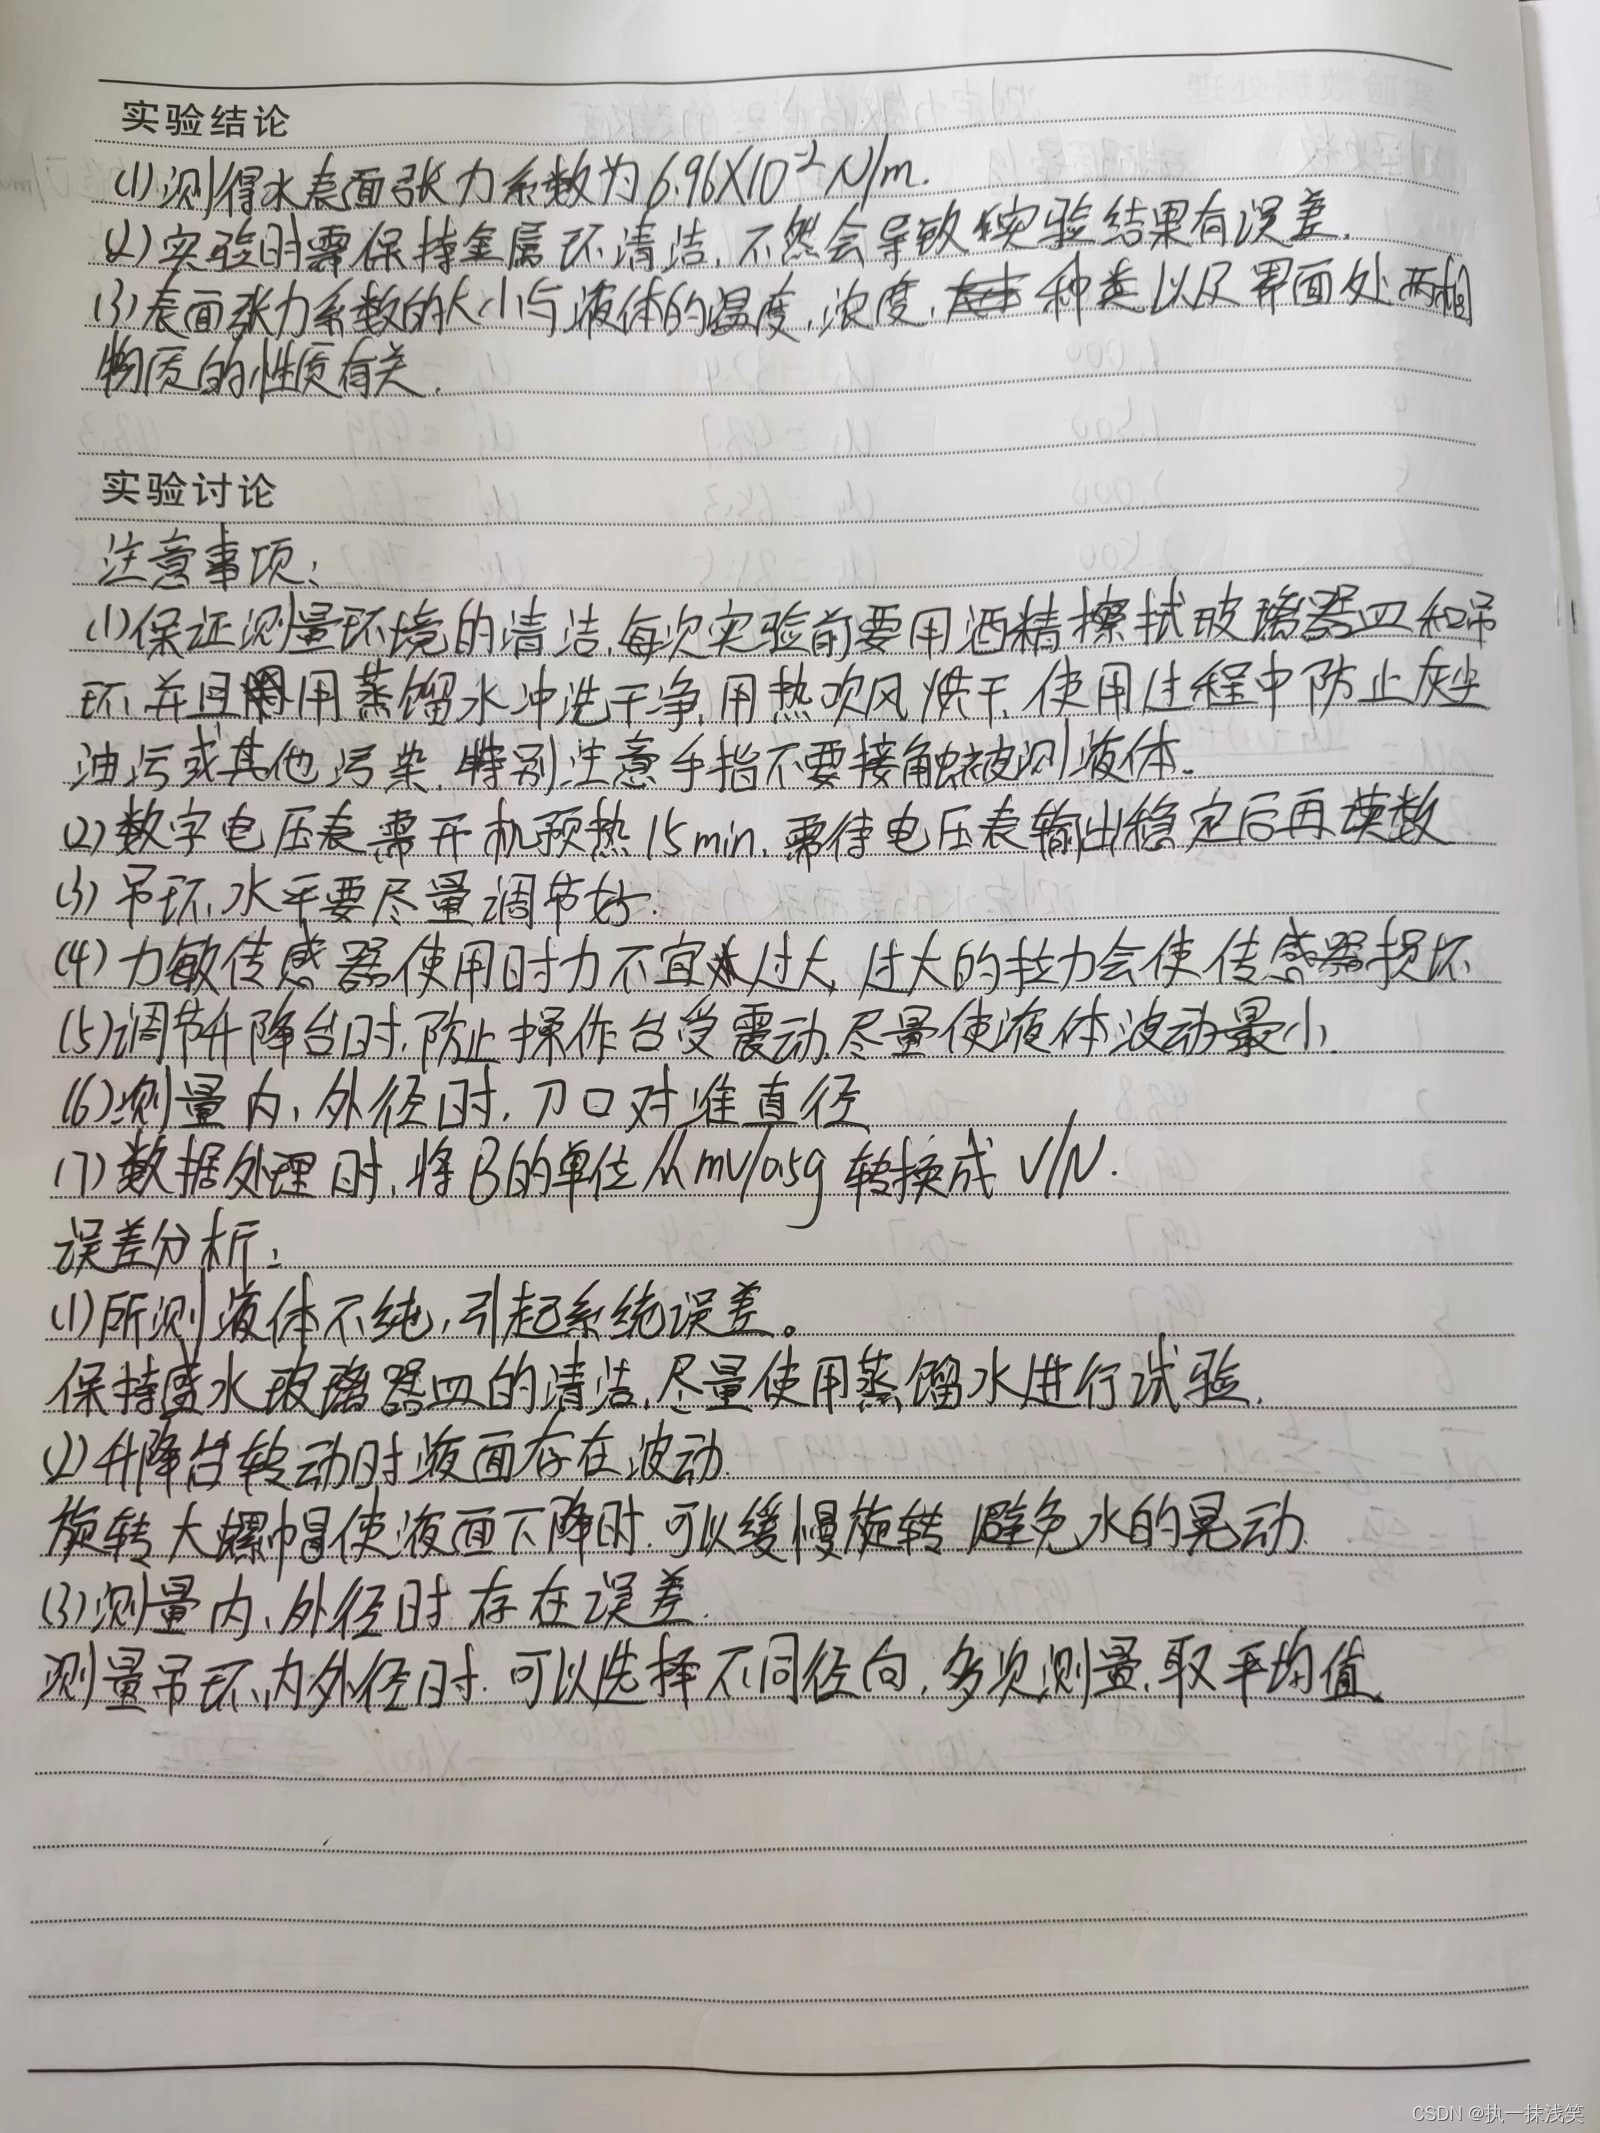 实验结论
(1)测得水表面张力系数为6.96×10⁻²N/m.
(2)实验时需保持金属环清洁,不然会导致实验结果有误差.
(3)表面张力系数的大小与液体的温度,浓度,种类以及界面处两相
物质的性质有关.
实验讨论
注意事项:
(1)保证测量环境的清洁,每次实验前要用酒精擦拭玻璃器皿和吊
环,并且用蒸馏水冲洗干净,用热吹风烘干,使用过程中防止灰尘
油污或其他污染,特别注意手指不要接触被测液体。
(2)数字电压表需开机预热15min,需待电压表输出稳定后再读数
(3)吊环水平要尽量调节好.
(4)力敏传感器使用时力不宜过大,过大的拉力会使传感器损坏
(5)调节升降台时,防止操作台受震动,尽量使液体波动最小.
(6)测量内、外径时,刀口对准直径
(7)数据处理时,将B的单位从mV/0.5g转换成V/N.
误差分析:
(1)所测液体不纯,引起系统误差。
保持盛水玻璃器皿的清洁,尽量使用蒸馏水进行试验.
(2)升降台转动时液面存在波动.
旋转大螺帽使液面下降时.可以缓慢旋转,避免水的晃动.
(3)测量内、外径时存在误差.
测量吊环内外径时.可以选择不同径向,多次测量,取平均值.
CSDN @执一抹浅笑